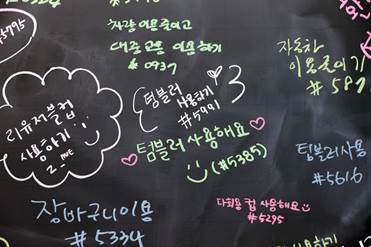 차량이용줄이고
대중교통 이용하기
# 0937
자동차
이용줄이기
# 587
텀블러
사용하기
# 5991
리유저블컵
사용하기
텀블러 사용해요
(#5385)
텀블러사용
#5616
다회용 컵 사용해요
#5295
장바구니이용
#5334